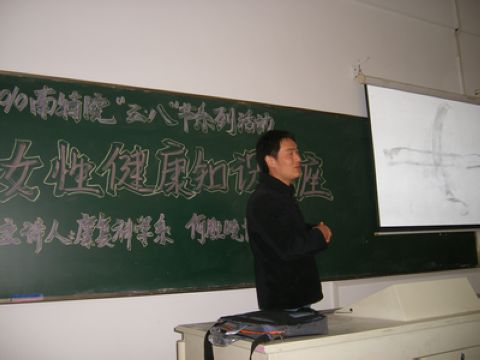 南特院“三八”节系列活动
女性健康知识 座
主讲人:康复科学系 何